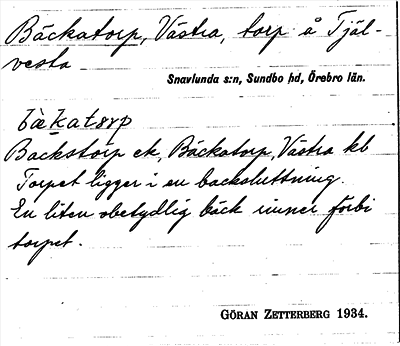 Bäckatorp, Västra, torp å Tjäl-
vesta
Snavlunda s:n, Sundbo hd, Örebro län.
bàkatorp
Backstorp ek, Bäckatorp, Västra kb
Torpet ligger i en backsluttning.
En liten obetydlig bäck rinner förbi
torpet.
GÖRAN ZETTERBERG 1934.